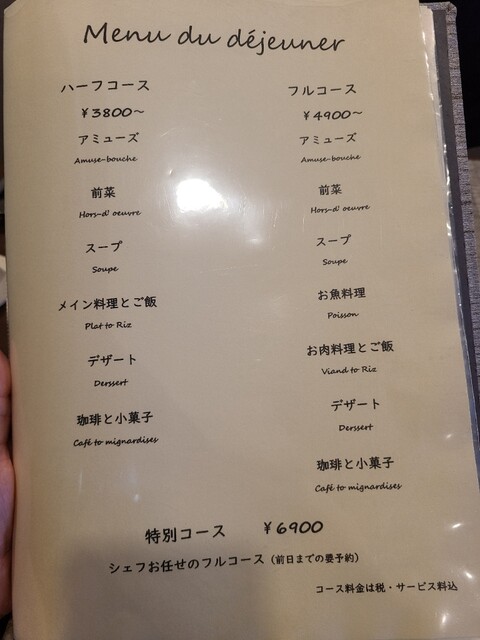 Menu du déjeuner
ハーフコース
￥3800～
アミューズ
Amuse-bouche
前菜
Hors-d' oeuvre
スープ
Soupe
メイン料理とご飯
Plat to Riz
デザート
Derssert
珈琲と小菓子
Café to mignardises
フルコース
￥4900～
アミューズ
Amuse-bouche
前菜
Hors-d' oeuvre
スープ
Soupe
お魚料理
Poisson
お肉料理とご飯
Viand to Riz
デザート
Derssert
珈琲と小菓子
Café to mignardises
特別コース ￥6900
シェフお任せのフルコース（前日までの要予約）
コース料金は税・サービス料込